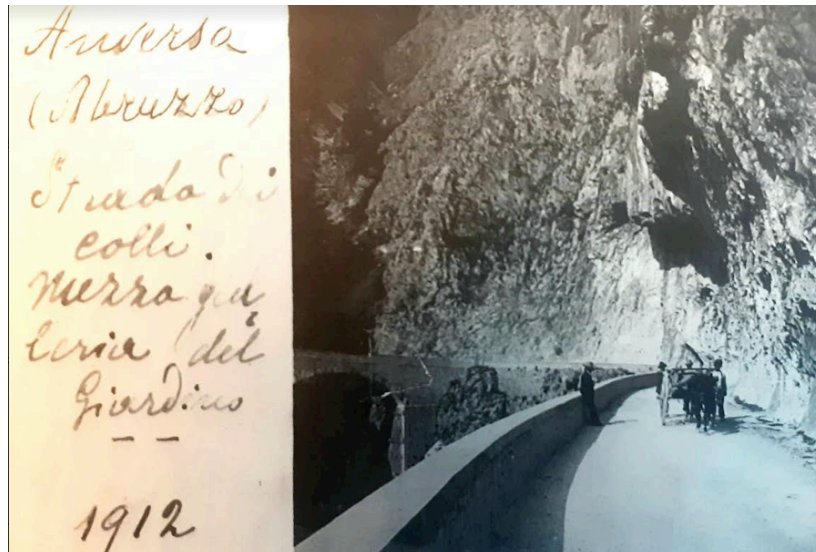 Anversa
(Abruzzo)
Strada di
colli.
Mezza gal
leria del
Giardino
1912